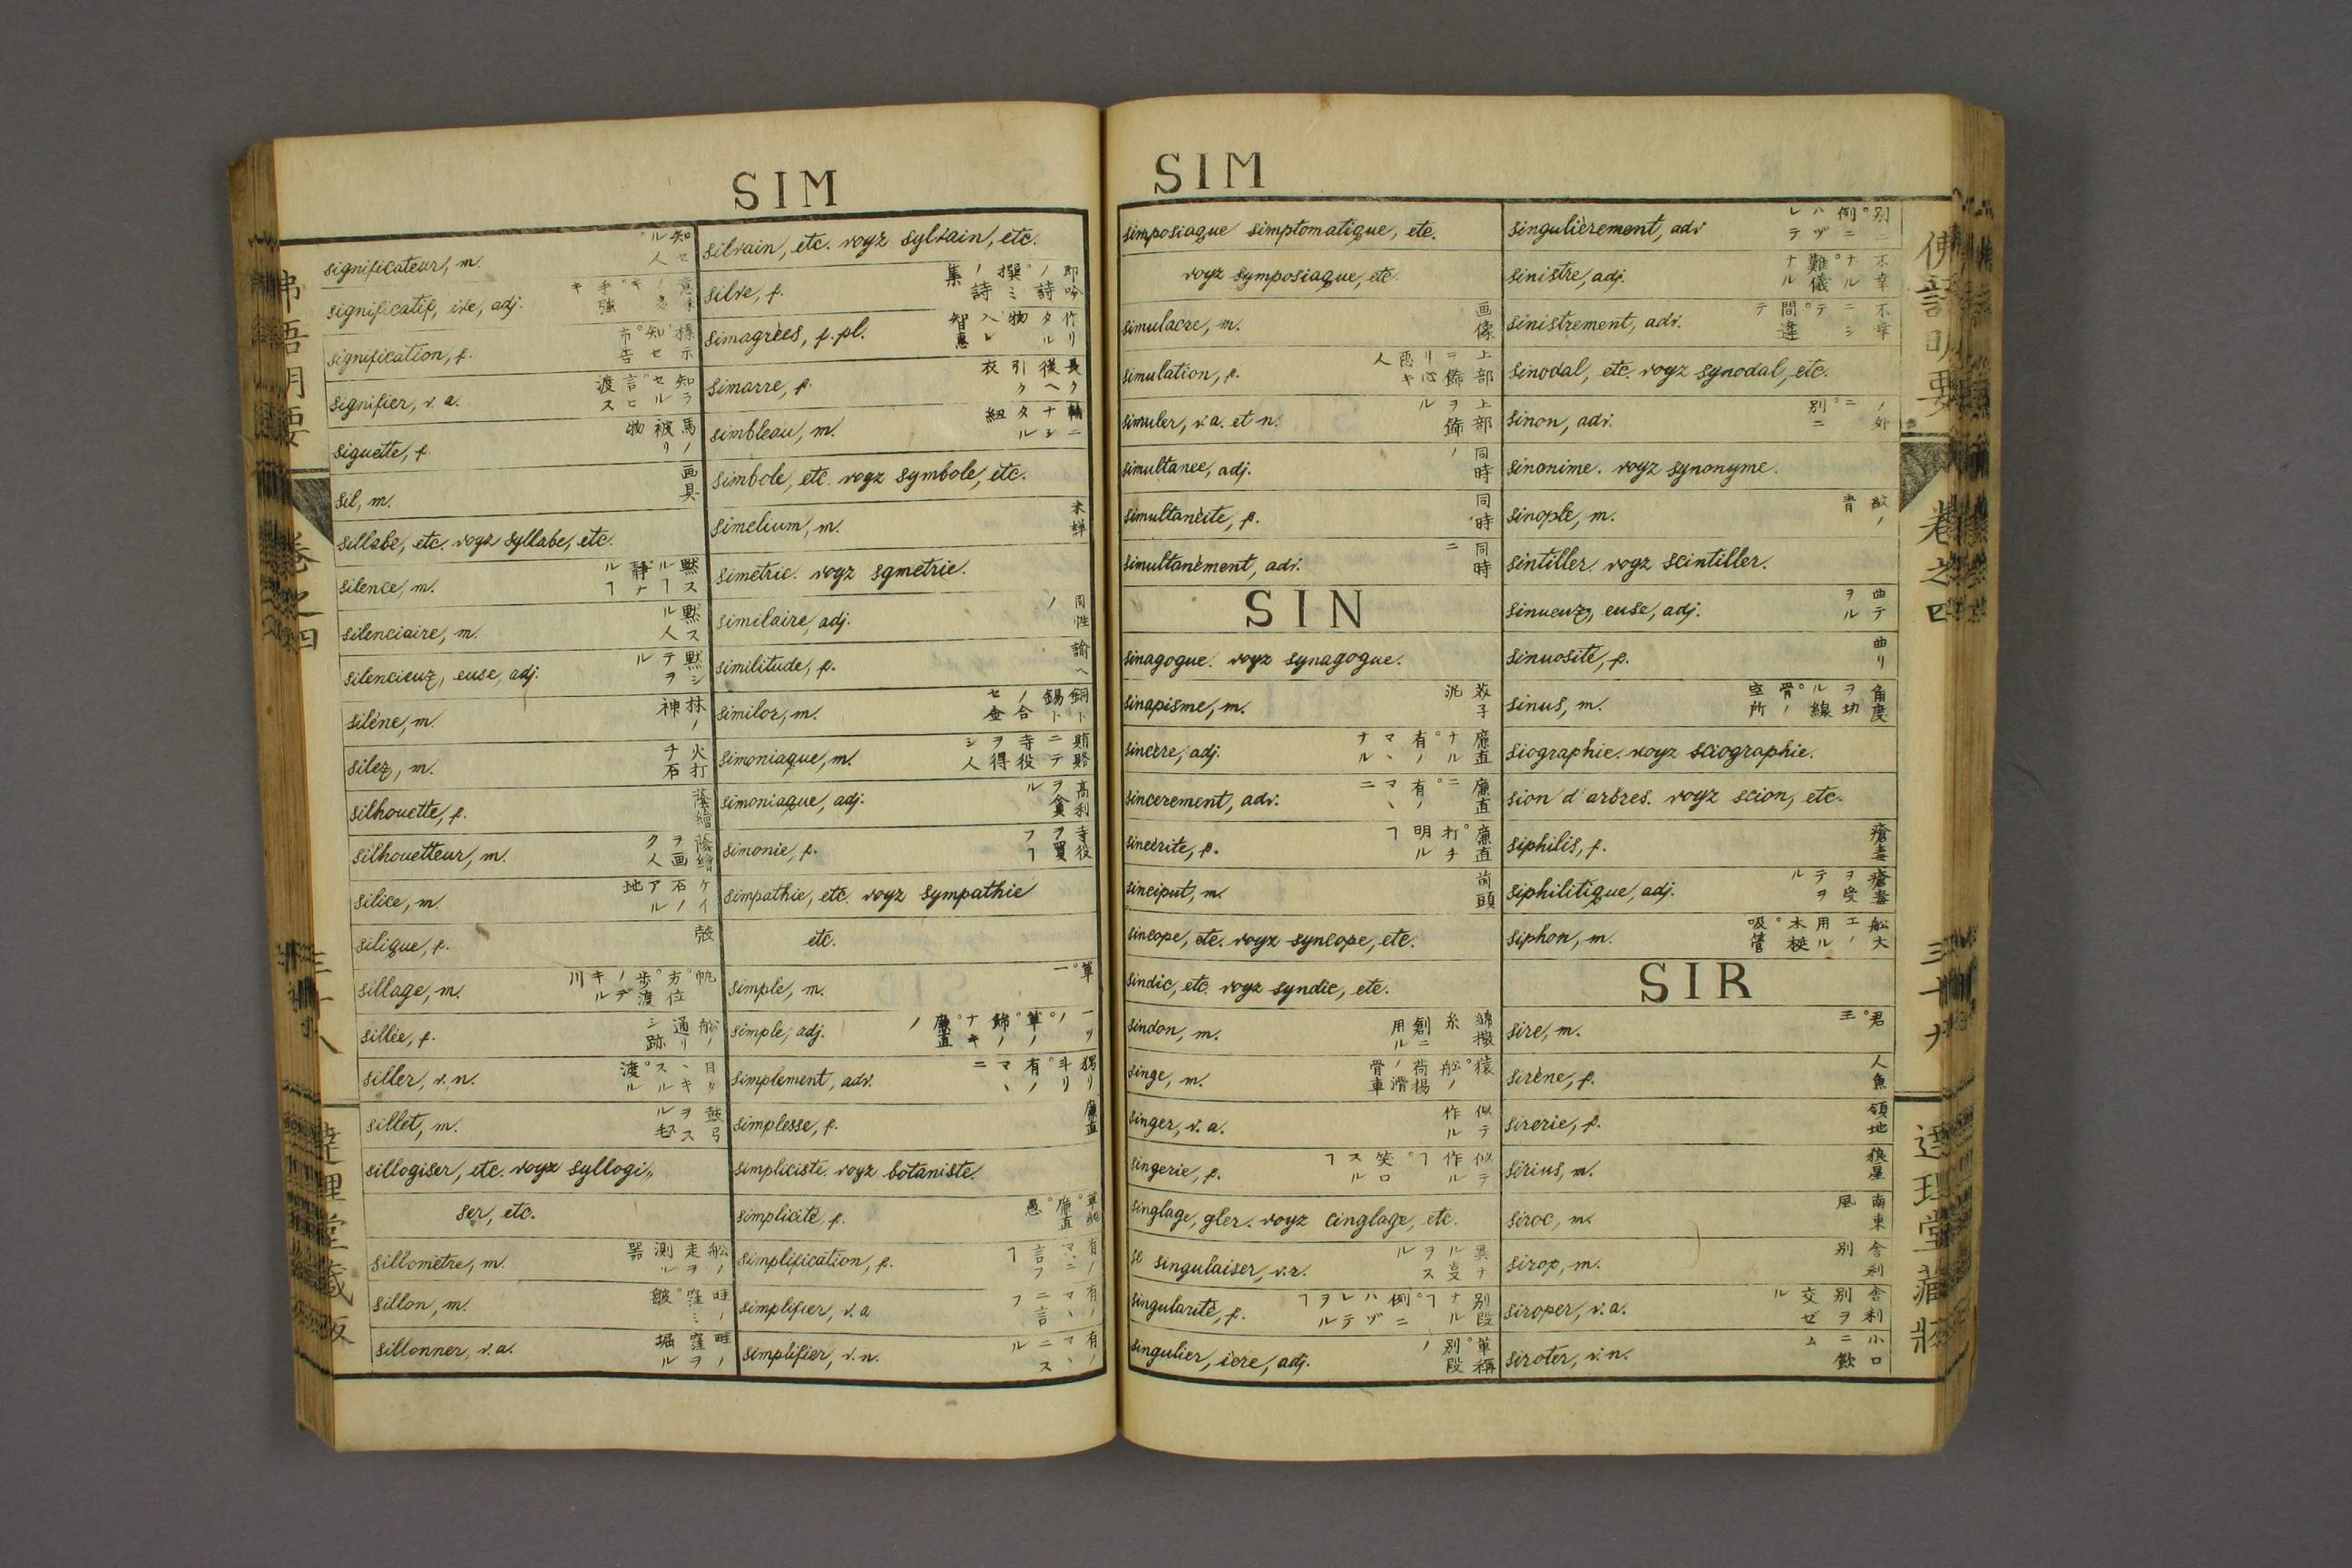 SIM
significateur, m. 知セル。人
significatif, ive, adj.
signification, f. 標示。知セ。布告
signifier, v. a. 知ラセル。言ヒ渡ス
siguette, f. 馬ノ被リ物
sil, m. 画具
sillabe, etc. voyz syllabe, etc.
silence, m. 黙スルヿ。静ナルヿ
silenciaire, m. 黙スル人
silencieuz, euse, adj. 黙シテヲル
silène, m. 林ノ神
silez, m. 火打チ石
silhouette, f. 蔭繪
silhouetteur, m. 蔭繪ヲ画ク人
silice, m. ケイ石ノアル地
silique, f. 殻
sillage, m.
sillée, f. 舩ノ通リシ跡
siller, v. n.
sillet, m.
sillogiser, etc. voyz syllogi„
ser, etc.
sillomètre, m. 舩ノ走ヲ測ル器
sillon, m. 畦ノ窪ミ。皺
sillonner, v. a. 畦ノ窪ヲ堀ル
silvain, etc. voyz sylvain, etc.
silve, f. 即吟ノ詩。撰ミノ詩集
simagrèes, f. pl. 作リタル物。入レ智恵
simarre, f. 長ク後ヘ引ク衣
simbleau, m. 輪ニナシタル紐
simbole, etc. voyz symbole, etc.
simelium, m. 未詳
simetric. voyz sgmetrie.
similaire, adj. 同性ノ
similitude, f. 諭ヘ
similor, m. 銅ト錫トノ合セ金
simoniaque, m. 賄賂ニテ寺役ヲ得シ人
simoniaque, adj. 高利ヲ貪ル
simonie, f. 寺役ヲ買フヿ
simpathie, etc. voyz sympathie
etc.
simple, m. 草。一
simple, adj. 一ツノ。草ノ。飾ノナキ。廉直ノ
simplement, adv. 獨リ斗リ。有ノマヽニ
simplesse, f. 廉直
simpliciste. voyz botaniste.
simplicité, f.
simplification, f. 有ノマヽニ言フヿ
simplifier, v. a 有ノマヽニ言フ
simplifier, v. n. 有ノマヽニスル
SIM
simposiaque simptomatique, etc.
voyz symposiaque, etc
simulacre, m. 画像
simulation, f. 上部ヲ飾リ心悪キ人
simuler, v. a. et n. 上部ヲ飾ル
simultanee, adj. 同時ノ
simultanèite, f. 同時
simultanèment, adv. 同時ニ
SIN
sinagogue. voyz synagogue.
sinapisme, m. 芥子泥
sincère, adj. 廉直ナル。有ノマヽナル
sincerement, adv. 廉直ニ。有ノマヽニ
sincèrite, f. 廉直。打チ明ルヿ
sinciput, m. 前頭
sincope, etc. voyz syncope, etc.
sindic, etc. voyz syndic, etc.
sindon, m. 綿撒糸創ニ用ル
singe, m. 猿。舩ノ荷揚ノ滑車
singer, v. a. 似テ作ル
singerie, f. 似テ作ルヿ。笑口スルヿ
singlage, gler. voyz cinglage, etc.
se singulaiser, v. r. 異ナル㕝ヲスル
singularitè, f. 別段ナルヿ。例ニハヅレテヲルヿ
singulier, ière, adj. 單稱。別段ノ
singulièrement, adv 別ニ。例ニハヅレテ
sinistre, adj. 不幸ナル。難儀ナル
sinistrement, adv. 不幸ニシテ。間違テ
sinodal, etc. voyz synodal, etc.
sinon, adv. ノ外ニ。別ニ
sinonime. voyz synonyme.
sinople, m. 紋ノ青
sintiller. voyz scintiller.
sinueuz, euse, adj. 曲テヲル
sinuositè, f. 曲リ
sinus, m. 角度ヲ切ル線。骨ノ空所
siographie. voyz sciographie.
sion d'arbres. voyz scion, etc.
siphilis, f. 瘡毒
siphilitique, adj. 瘡毒ヲ受テヲル
siphon, m. 舩大工ノ用ル木梃。吸管
SIR
sire, m. 君。王
sirène, f. 人魚
sirerie, f. 領地
sirius, m. 狼星
siroc, m. 南東風
sirop, m. 舎利別
siroper, v. a. 舎利別ヲ交ゼル
siroter, v. n. 小口ニ飲ム
佛語明要
卷之四
三十九
達理堂藏版